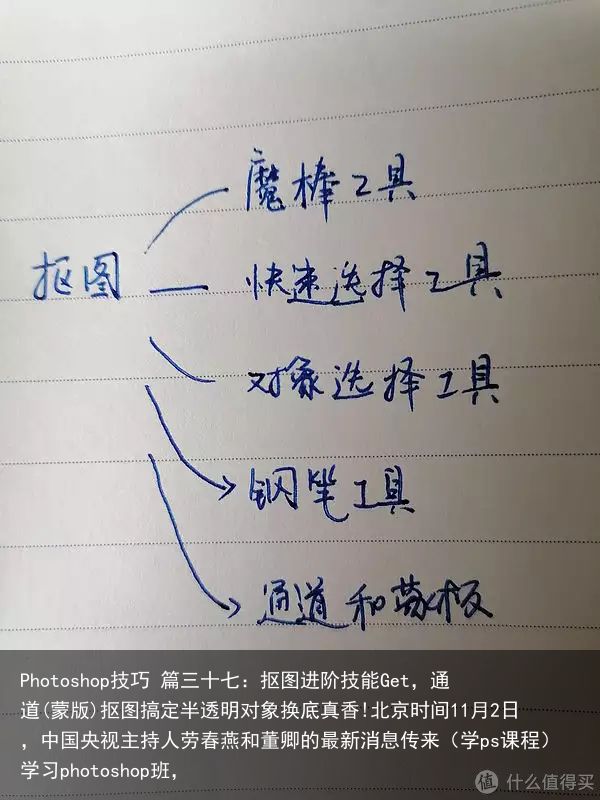 魔棒工具
抠图
快速选择工具
对象选择工具
钢笔工具
通道和蒙板
Photoshop技巧 篇三十七：抠图进阶技能Get，通
道(蒙版)抠图搞定半透明对象换底真香!北京时间11月2日
，中国央视主持人劳春燕和董卿的最新消息传来（学ps课程）
学习photoshop班，
值 什么值得买